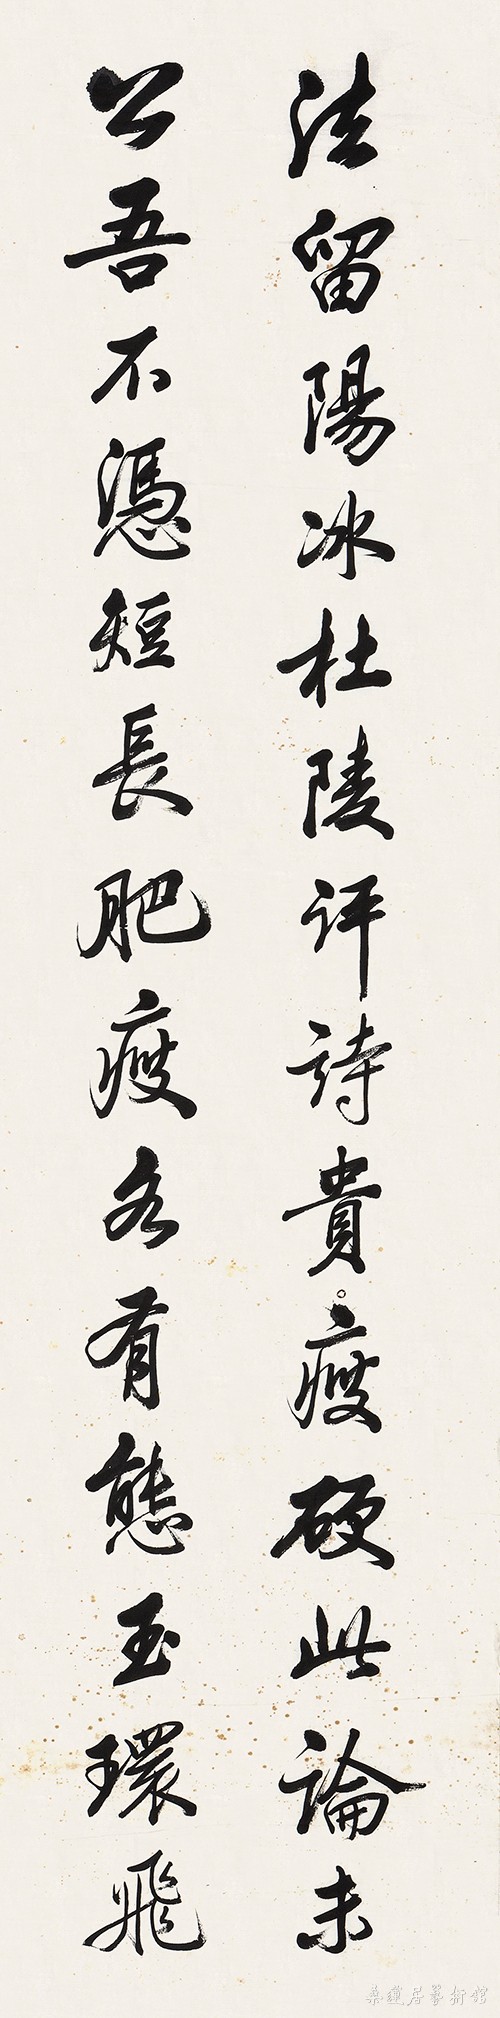 法留陽冰杜陵評詩貴瘦硬此論未
公吾不憑短長肥瘦各有態玉環飛
桑蓮居藝術館